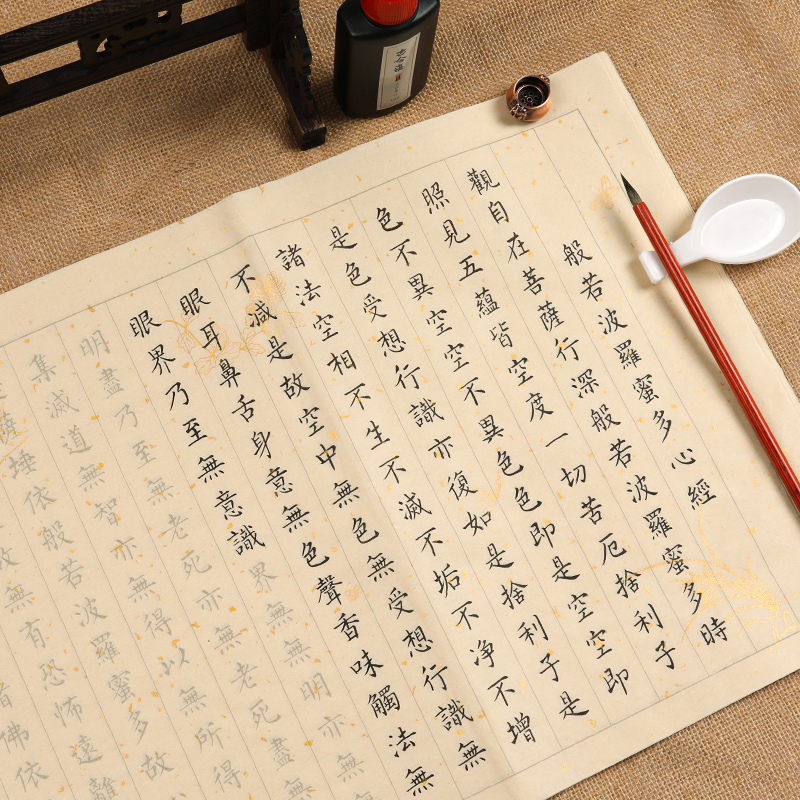 般若波羅蜜多心經
觀自在菩薩行深般若波羅蜜多時
照見五蘊皆空度一切苦厄捨利子
色不異空空不異色色即是空空即
是色受想行識亦復如是捨利子是
諸法空相不生不滅不垢不净不增
不減是故空中無色無受想行識無
眼耳鼻舌身意無色聲香味觸法無
眼界乃至無意識界無無明亦無無
明盡乃至無老死亦無老死盡無
集滅道無智亦無得以無所得
薩埵依般若波羅蜜多故
故無有恐怖遠離
佛依